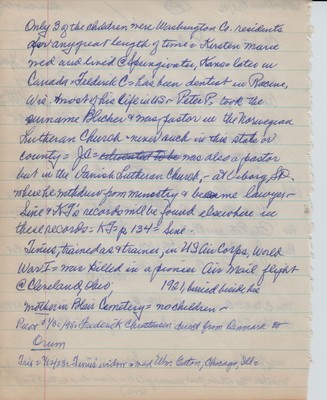 Only 3 of the children were Washington Co. residents
for any great length of time = Kirsten Marie
md and lived @ Springwater, Kans later in
Canada = Frederik C = has been dentist in Racine,
Wis. most of his life in US = Peter P. took the
surname Blicher & was pastor in the Norwegian
Lutheran Church - never such in this state or
county = J.C. = educated to be was also a pastor
but in the Danish Lutheran Church, - at Viborg SD
where he withdrew from ministry & became lawyer -
Sine & KJ's records will be found elsewhere in
these records = KJ = p 134 = Sine -
Tinus, trained as a trainer, in US Air Corps, World
War I = was killed in a pioneer Air Mail flight
@ Cleveland, Ohio, 1921, buried beside his
mother in Blair Cemetery = no children -
Frederick Christensen moved from Denmark to
Orum
Tinus' widow = med Wm. Caton, Chicago, Ill =